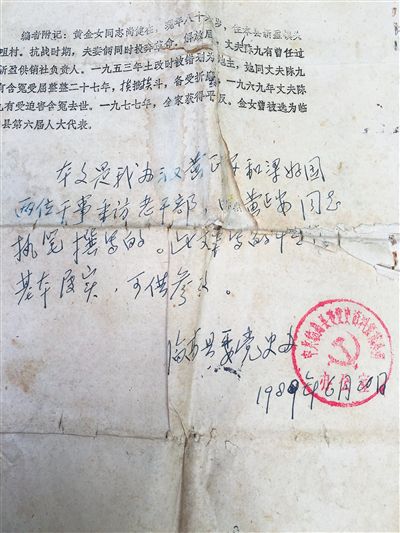 编者附记：黄金女同志尚健在，现年八十
咀村。抗战时期，夫妻俩同投奔革命。解放后，丈夫陈九有曾任过
新盈供销社负责人。一九五三年土改时被错划为地主，她同丈夫陈
有含冤受屈整整二十七年，挨抛挨斗，备受折磨。一九六九年丈夫陈
九有受迫害含冤去世。一九七七年，全家获得平反。金女曾被选为临
县第六届人大代表。
本文是我办
两位干事采访老干部，由黄 同志
执笔撰写的。此文
基本属实，可供参考。
临高县委党史办
1989年6月20日
中共临高县委党史
办公室